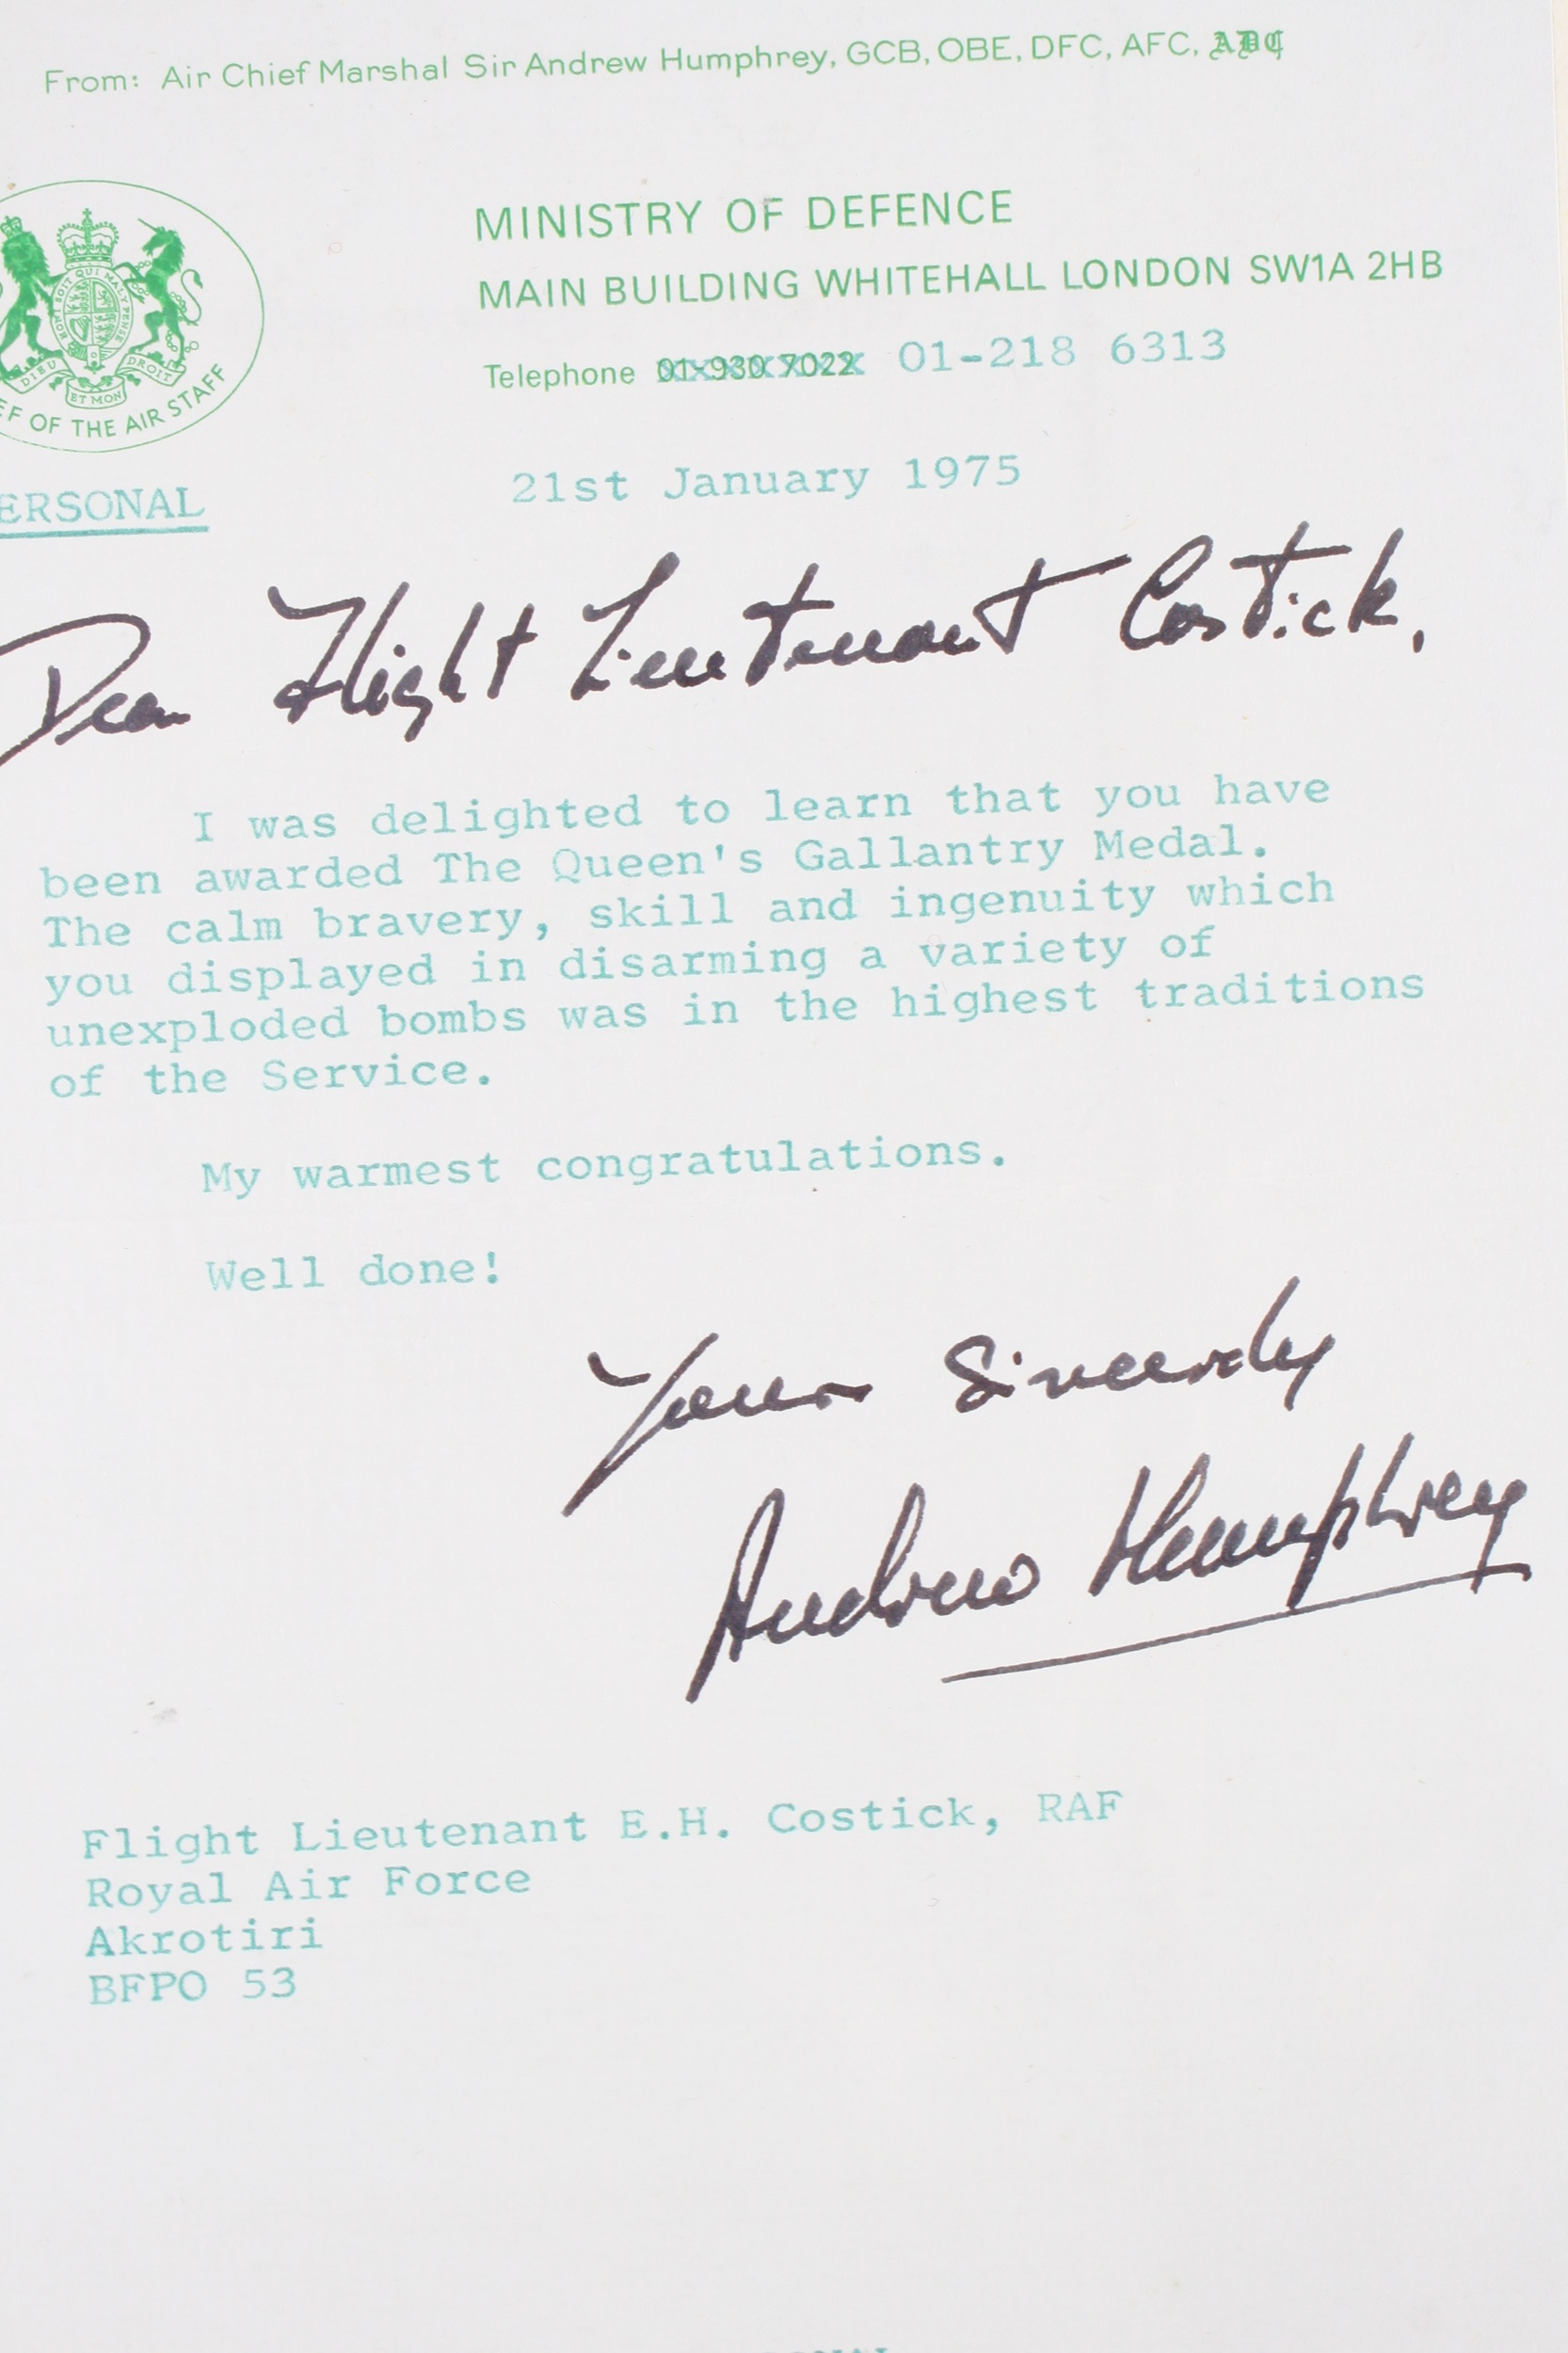 From: Air Chief Marshal Sir Andrew Humphrey, GCB, OBE, DFC, AFC,
MINISTRY OF DEFENCE
MAIN BUILDING WHITEHALL LONDON SW1A 2HB
Telephone 01-930 7022 01-218 6313
HONI SOIT QUI MAL Y PENSE
DIEU ET MON DROIT
EF OF THE AIR STAFF
21st January 1975
ERSONAL
Dear Flight Lieutenant Costick,
I was delighted to learn that you have
been awarded The Queen's Gallantry Medal.
The calm bravery, skill and ingenuity which
you displayed in disarming a variety of
unexploded bombs was in the highest traditions
of the Service.
My warmest congratulations.
Well done!
Yours Sincerely
Andrew Humphrey
Flight Lieutenant E.H. Costick, RAF
Royal Air Force
Akrotiri
BFPO 53